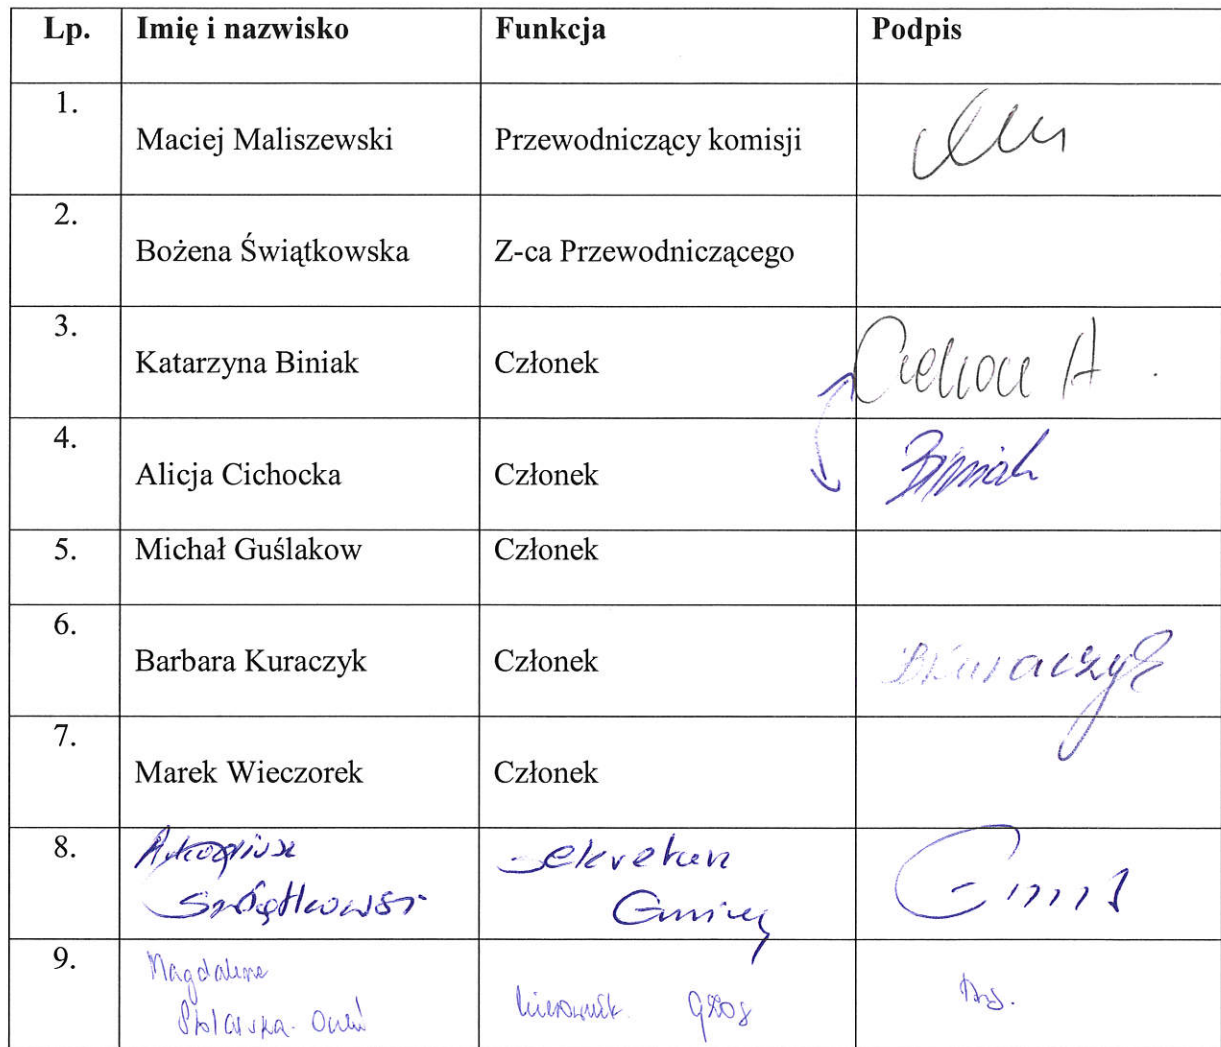 Lp. Imię i nazwisko Funkcja Podpis
1. Maciej Maliszewski Przewodniczący komisji
2. Bożena Świątkowska Z-ca Przewodniczącego
3. Katarzyna Biniak Członek
4. Alicja Cichocka Członek Biniak
5. Michał Guślakow Członek
6. Barbara Kuraczyk Członek BKuraczyk
7. Marek Wieczorek Członek
8. Arkadiusz Sekretarz
Świątkowski Gminy
9. Magdalena
Kierownik